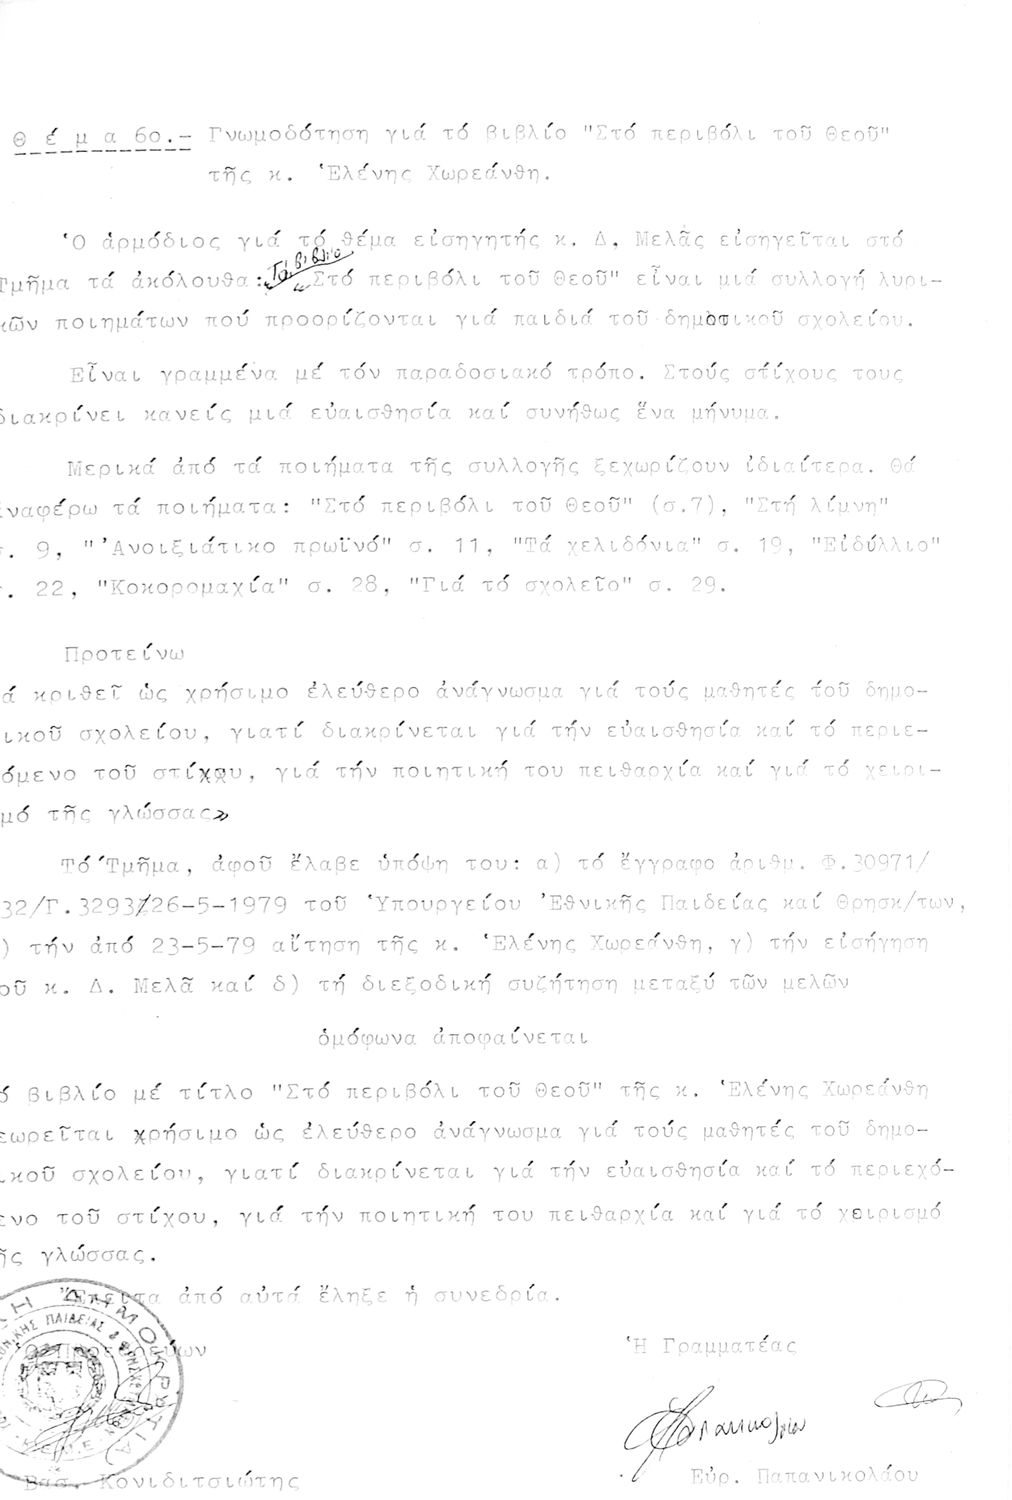 Θ έ μ α 6ο.- Γνωμοδότηση γιά τό βιβλίο "Στό περιβόλι τοῦ Θεοῦ"
τῆς κ. Ἑλένης Χωρεάνθη.
Ὁ ἁρμόδιος γιά τό θέμα εἰσηγητής κ. Δ. Μελᾶς εἰσηγεῖται στό
Τμῆμα τά ἀκόλουθα: «Τό βιβλίο "Στό περιβόλι τοῦ Θεοῦ" εἶναι μιά συλλογή λυρι-
κῶν ποιημάτων πού προορίζονται γιά παιδιά τοῦ δημοτικοῦ σχολείου.
Εἶναι γραμμένα μέ τόν παραδοσιακό τρόπο. Στούς στίχους τους
διακρίνει κανείς μιά εὐαισθησία καί συνήθως ἕνα μήνυμα.
Μερικά ἀπό τά ποιήματα τῆς συλλογῆς ξεχωρίζουν ἰδιαίτερα. Θά
ἀναφέρω τά ποιήματα: "Στό περιβόλι τοῦ Θεοῦ" (σ.7), "Στή λίμνη"
σ. 9, "Ἀνοιξιάτικο πρωϊνό" σ. 11, "Τά χελιδόνια" σ. 19, "Εἰδύλλιο"
σ. 22, "Κοκορομαχία" σ. 28, "Γιά τό σχολεῖο" σ. 29.
Προτείνω
ά κριθεῖ ὡς χρήσιμο ἐλεύθερο ἀνάγνωσμα γιά τούς μαθητές τοῦ δημο-
ικοῦ σχολείου, γιατί διακρίνεται γιά τήν εὐαισθησία καί τό περιε-
όμενο τοῦ στίχου, γιά τήν ποιητική του πειθαρχία καί γιά τό χειρι-
μό τῆς γλώσσας»
Τό Τμῆμα, ἀφοῦ ἔλαβε ὑπόψη του: α) τό ἔγγραφο ἀριθμ. Φ.30971/
32/Γ.3293/26-5-1979 τοῦ Ὑπουργείου Ἐθνικῆς Παιδείας καί Θρησκ/των,
) τήν ἀπό 23-5-79 αἴτηση τῆς κ. Ἑλένης Χωρεάνθη, γ) τήν εἰσήγηση
οῦ κ. Δ. Μελᾶ καί δ) τή διεξοδική συζήτηση μεταξύ τῶν μελῶν
ὁμόφωνα ἀποφαίνεται
ό βιβλίο μέ τίτλο "Στό περιβόλι τοῦ Θεοῦ" τῆς κ. Ἑλένης Χωρεάνθη
εωρεῖται χρήσιμο ὡς ἐλεύθερο ἀνάγνωσμα γιά τούς μαθητές τοῦ δημο-
ικοῦ σχολείου, γιατί διακρίνεται γιά τήν εὐαισθησία καί τό περιεχό-
ενο τοῦ στίχου, γιά τήν ποιητική του πειθαρχία καί γιά τό χειρισμό
ῆς γλώσσας.
Ἔπειτα ἀπό αὐτά ἔληξε ἡ συνεδρία.
Ὁ Προεδρεύων Ἡ Γραμματέας
Βασ. Κονιδιτσιώτης Εὐρ. Παπανικολάου